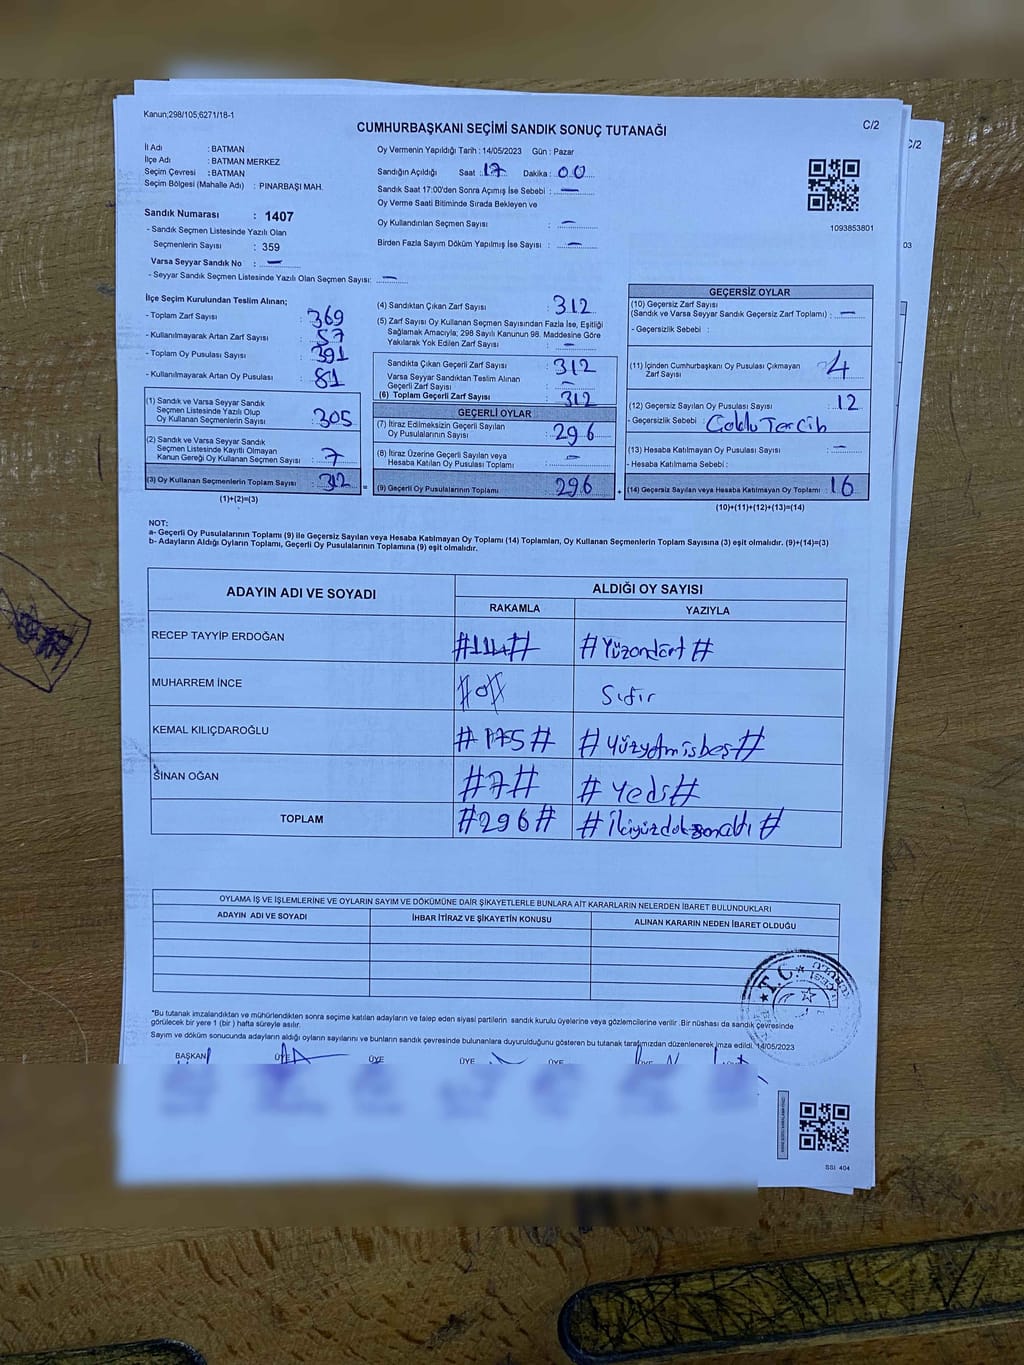 Kanun;298/105;6271/18-1
C/2
C/2
CUMHURBAŞKANI SEÇİMİ SANDIK SONUÇ TUTANAĞI
İl Adı : BATMAN
İlçe Adı : BATMAN MERKEZ
Seçim Çevresi : BATMAN
Seçim Bölgesi (Mahalle Adı) : PINARBAŞI MAH.
Sandık Numarası : 1407
- Sandık Seçmen Listesinde Yazılı Olan
Seçmenlerin Sayısı : 359
Varsa Seyyar Sandık No : —
- Seyyar Sandık Seçmen Listesinde Yazılı Olan Seçmen Sayısı: —
Oy Vermenin Yapıldığı Tarih : 14/05/2023 Gün : Pazar
Sandığın Açıldığı Saat : 17 Dakika : 00
Sandık Saat 17:00'den Sonra Açımış İse Sebebi : —
Oy Verme Saati Bitiminde Sırada Bekleyen ve
Oy Kullandırılan Seçmen Sayısı : —
Birden Fazla Sayım Döküm Yapılmış İse Sayısı : —
1093853801
03
İlçe Seçim Kurulundan Teslim Alınan;
- Toplam Zarf Sayısı : 369
- Kullanılmayarak Artan Zarf Sayısı : 57
- Toplam Oy Pusulası Sayısı : 391
- Kullanılmayarak Artan Oy Pusulası : 81
(1) Sandık ve Varsa Seyyar Sandık
Seçmen Listesinde Yazılı Olup
Oy Kullanan Seçmenlerin Sayısı : 305
(2) Sandık ve Varsa Seyyar Sandık
Seçmen Listesinde Kayıtlı Olmayan
Kanun Gereği Oy Kullanan Seçmen Sayısı : 7
(3) Oy Kullanan Seçmenlerin Toplam Sayısı : 312
(1)+(2)=(3)
=
(4) Sandıktan Çıkan Zarf Sayısı : 312
(5) Zarf Sayısı Oy Kullanan Seçmen Sayısından Fazla İse, Eşitliği
Sağlamak Amacıyla; 298 Sayılı Kanunun 98. Maddesine Göre
Yakılarak Yok Edilen Zarf Sayısı : —
Sandıkta Çıkan Geçerli Zarf Sayısı : 312
Varsa Seyyar Sandıktan Teslim Alınan
Geçerli Zarf Sayısı : —
(6) Toplam Geçerli Zarf Sayısı : 312
GEÇERLİ OYLAR
(7) İtiraz Edilmeksizin Geçerli Sayılan
Oy Pusulalarının Sayısı : 296
(8) İtiraz Üzerine Geçerli Sayılan veya
Hesaba Katılan Oy Pusulası Toplamı : —
(9) Geçerli Oy Pusulalarının Toplamı : 296
+
GEÇERSİZ OYLAR
(10) Geçersiz Zarf Sayısı
(Sandık ve Varsa Seyyar Sandık Geçersiz Zarf Toplamı) : —
- Geçersizlik Sebebi :
(11) İçinden Cumhurbaşkanı Oy Pusulası Çıkmayan
Zarf Sayısı : 4
(12) Geçersiz Sayılan Oy Pusulası Sayısı : 12
- Geçersizlik Sebebi : Çoklu Tercih
(13) Hesaba Katılmayan Oy Pusulası Sayısı : —
- Hesaba Katılmama Sebebi :
(14) Geçersiz Sayılan veya Hesaba Katılmayan Oy Toplamı : 16
(10)+(11)+(12)+(13)=(14)
NOT:
a- Geçerli Oy Pusulalarının Toplamı (9) ile Geçersiz Sayılan veya Hesaba Katılmayan Oy Toplamı (14) Toplamları, Oy Kullanan Seçmenlerin Toplam Sayısına (3) eşit olmalıdır. (9)+(14)=(3)
b- Adayların Aldığı Oyların Toplamı, Geçerli Oy Pusulalarının Toplamına (9) eşit olmalıdır.
ADAYIN ADI VE SOYADI ALDIĞI OY SAYISI
RAKAMLA YAZIYLA
RECEP TAYYİP ERDOĞAN #114# #Yüzondört#
MUHARREM İNCE #0# Sıfır
KEMAL KILIÇDAROĞLU #175# #Yüzyetmişbeş#
SİNAN OĞAN #7# #Yedi#
TOPLAM #296# #İkiyüzdoksanaltı#
OYLAMA İŞ VE İŞLEMLERİNE VE OYLARIN SAYIM VE DÖKÜMÜNE DAİR ŞİKAYETLERLE BUNLARA AİT KARARLARIN NELERDEN İBARET BULUNDUKLARI
ADAYIN ADI VE SOYADI İHBAR İTİRAZ VE ŞİKAYETİN KONUSU ALINAN KARARIN NEDEN İBARET OLDUĞU
T.C.
"Bu tutanak imzalandıktan ve mühürlendikten sonra seçime katılan adayların ve talep eden siyasi partilerin sandık kurulu üyelerine veya gözlemcilerine verilir .Bir nüshası da sandık çevresinde
görülecek bir yere 1 (bir ) hafta süreyle asılır.
Sayım ve döküm sonucunda adayların aldığı oyların sayılarını ve bunların sandık çevresinde bulunanlara duyurulduğunu gösteren bu tutanak tarafımızdan düzenlenerek imza edildi. 14/05/2023
BAŞKAN ÜYE ÜYE ÜYE ÜYE ÜYE
SSI 404